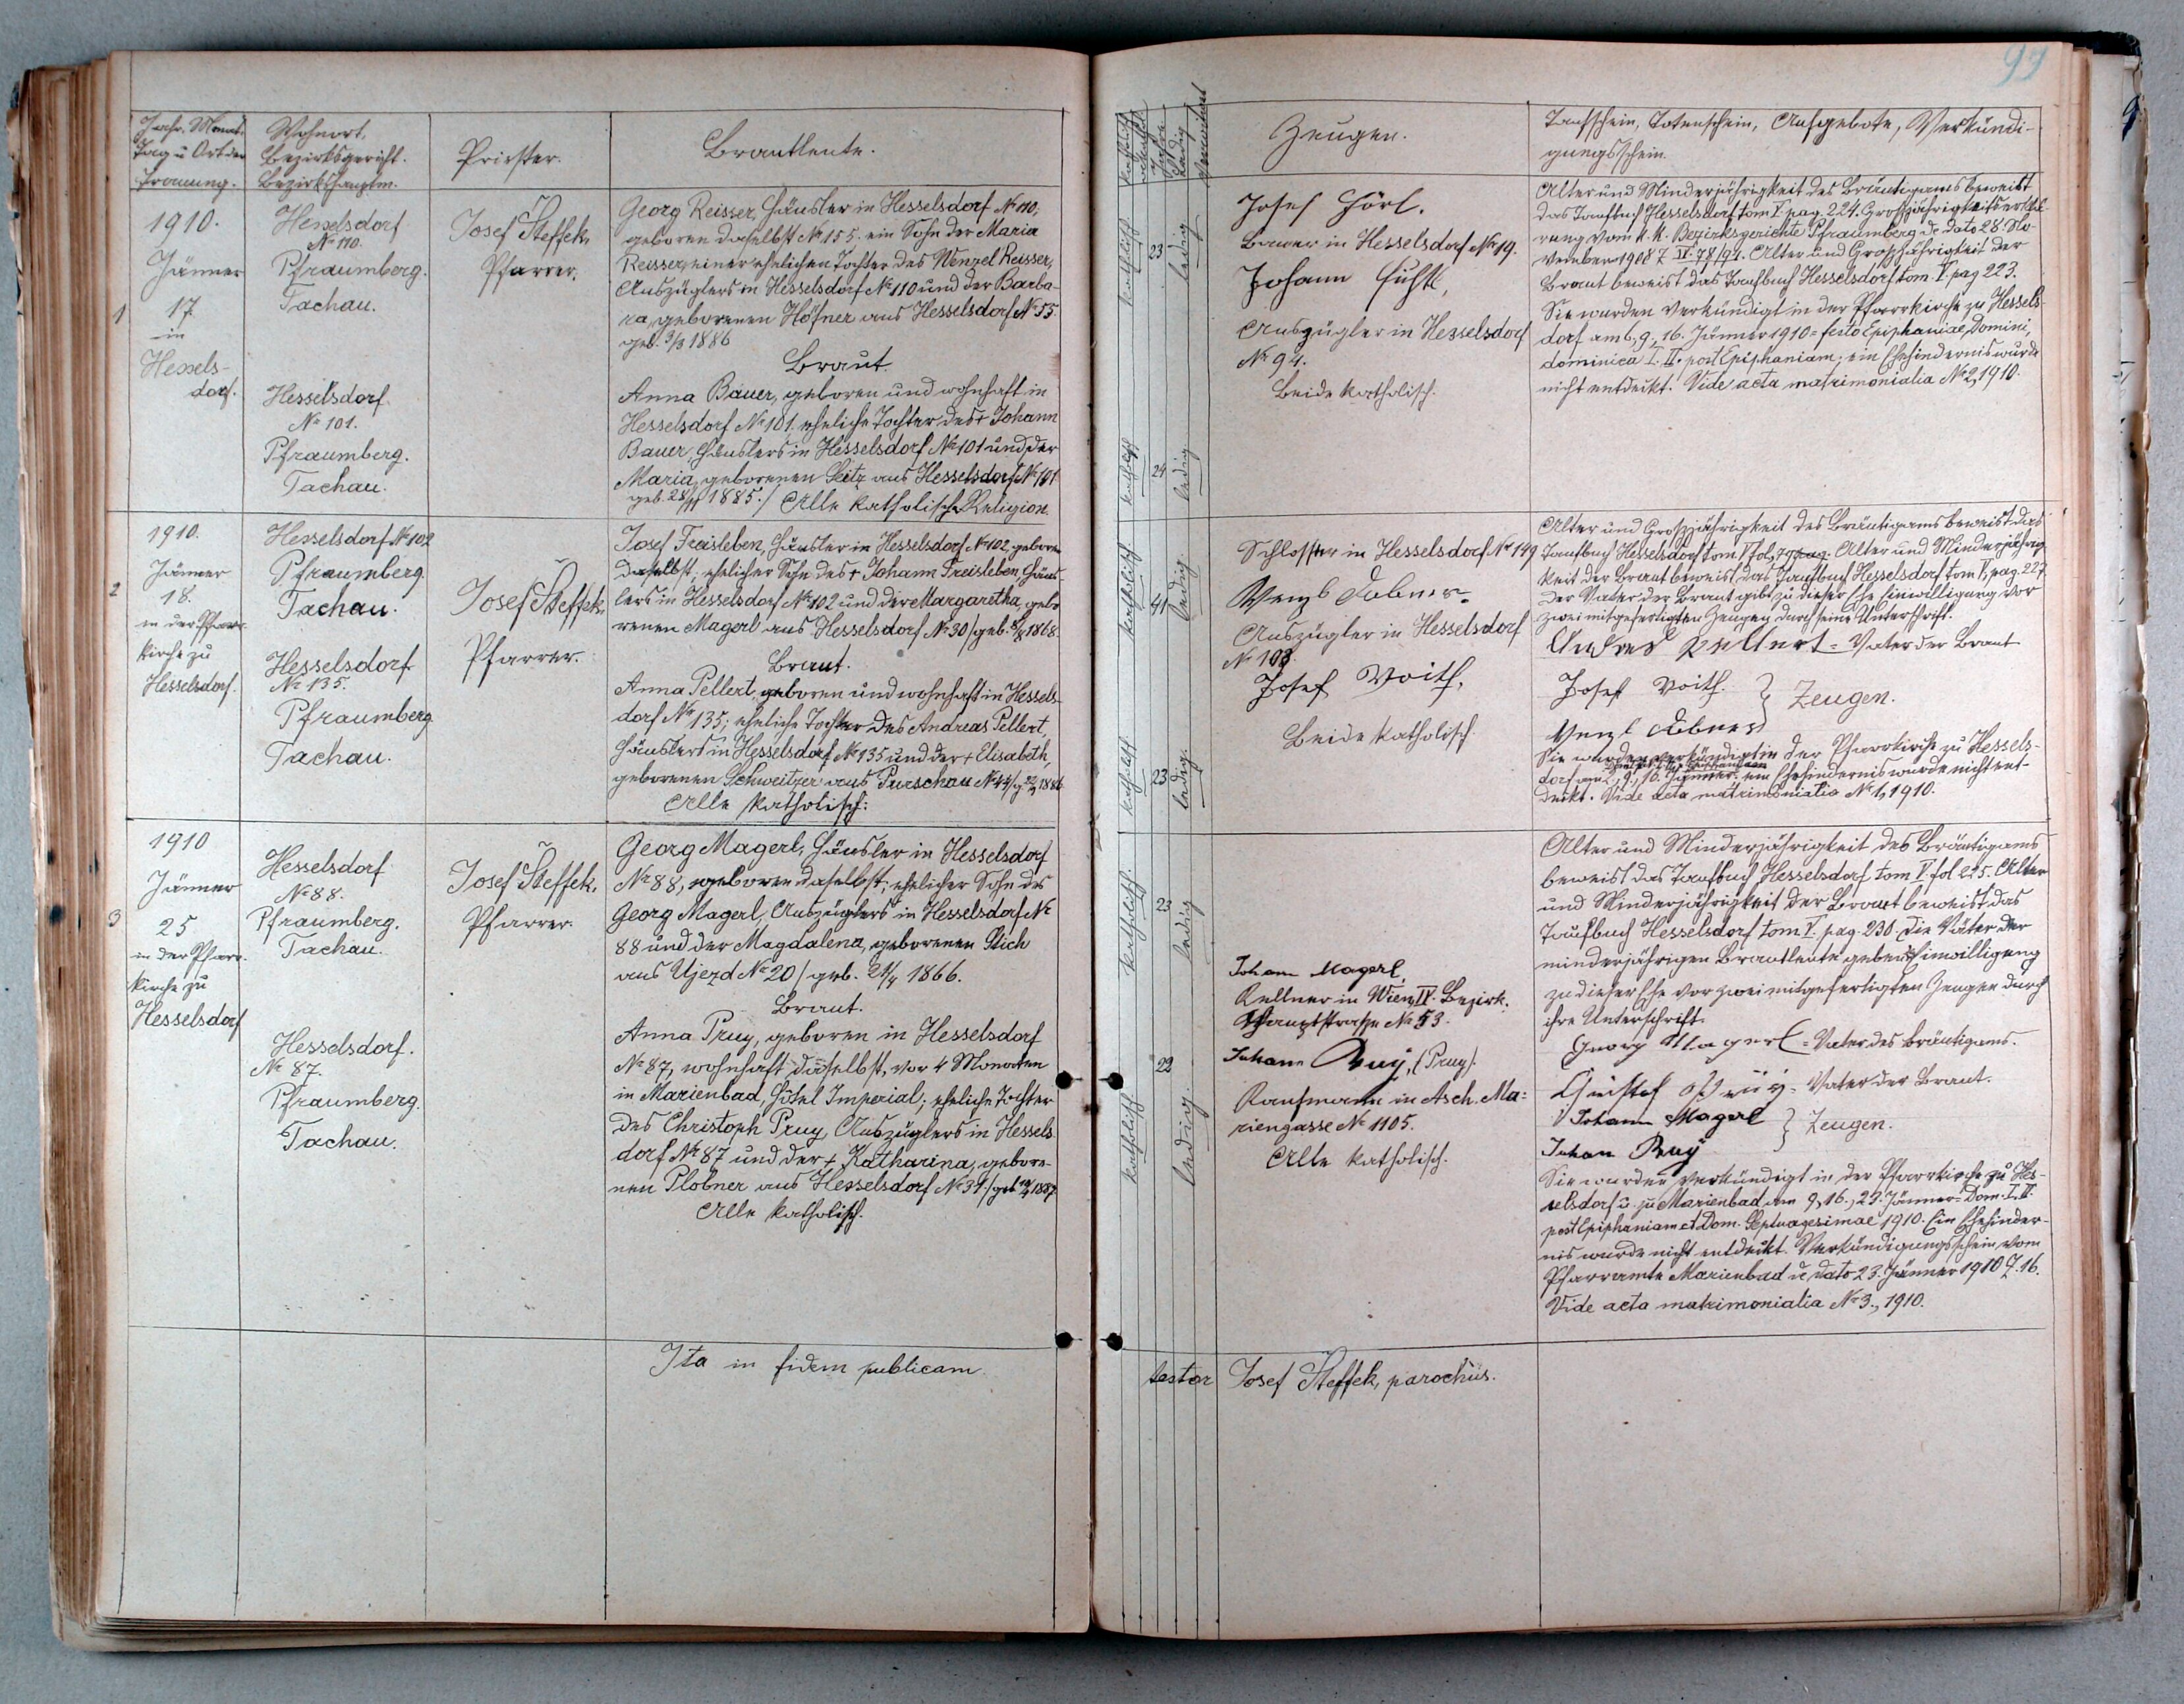 99
Jahr, Monat,
Tag u Ort der
Trauung.
Wohnort,
Bezirksgericht.
Bezirkshauptm.
Priester.
Brautleute.
1
1910.
Jänner
17.
in
Hessels-
dorf.
Hesselsdorf
№ 110.
Pfraumberg.
Tachau.
Hesselsdorf.
№ 101.
Pfraumberg.
Tachau.
Josef Steffek,
Pfarrer.
Georg Reisser, Häusler in Hesselsdorf № 110,
geboren daselbst № 155. ein Sohn der Maria
Reisser, einer ehelichen Tochter des Wenzel Reisser,
Auszüglers in Hesselsdorf № 110 und der Barba-
ra, geborenen Höfner aus Hesselsdorf № 55.
geb. 3/3 1886
Braut.
Anna Bauer, geboren und wohnhaft in
Hesselsdorf № 101. eheliche Tochter des + Johann
Bauer, Häuslers in Hesselsdorf № 101 und der
Maria, geborenen Seitz aus Hesselsdorf № 101
geb. 28/11 1885./ Alle katholischer Religion.
2
1910.
Jänner
18.
in der Pfarr-
kirche zu
Hesselsdorf.
Hesselsdorf № 102
Pfraumberg.
Tachau.
Hesselsdorf.
№ 135.
Pfraumberg
Tachau.
Josef Steffek,
Pfarrer.
Josef Freisleben, Häusler in Hesselsdorf № 102, geboren
daselbst; ehelicher Sohn des + Johann Freisleben, Häus-
lers in Hesselsdorf № 102 und der Margaretha, gebo
renen Magerl aus Hesselsdorf № 30/ geb. 1868.
Braut.
Anna Pellert, geboren und wohnhaft in Hessels-
dorf № 135; eheliche Tochter des Andreas Pellert,
Häuslers in Hesselsdorf № 135 und der + Elisabeth,
geborenen Schweitzer aus Purschau № 44/ g. 1886
Alle katholisch:
3
1910
Jänner
25
in der Pfarr-
kirche zu
Hesselsdorf
Hesselsdorf
№ 88.
Pfraumberg.
Tachau.
Hesselsdorf.
№ 87.
Pfraumberg.
Tachau.
Josef Steffek,
Pfarrer.
Georg Magerl, Häusler in Hesselsdorf
№ 88, geboren daselbst; ehelicher Sohn des
Georg Magerl, Auszüglers in Hesselsdorf №
88 und der Magdalena, geborenen Stich
aus Ujezd № 20/ geb. 21/4 1866.
Braut.
Anna Pruy, geboren in Hesselsdorf
№ 87, wohnhaft daselbst, vor 4 Monaten
in Marienbad, Hôtel Imperial; eheliche Tochter
des Christoph Pruy, Auszüglers in Hessels-
dorf № 87 und der + Katharina, gebore-
nen Plobner aus Hesselsdorf № 34./ geb 1887
Alle katholisch.
Ita in fidem publicam
Zeugen.
Taufschein, Totenschein, Aufgebote, Verkündi-
gungsschein.
katholisch
23
ledig
katholisch
24
ledig
Josef Hörl.
Bauer in Hesselsdorf № 19.
Johann
Auszügler in Hesselsdorf
№ 94.
Beide katholisch.
Alter und Minderjährigkeit des Bräutigams beweist
das Taufb. Hesselsdorf tom V. pag. 224. Großjährigkeitserklä-
rung vom k. k. Bezirksgerichte Pfraumberg de dato 28. No-
vember 1908 Alter und Großjährigkeit der
Braut beweist das Taufbuch Hesselsdorf tom. V. pag 223.
Sie wurden verkündigt in der Pfarrkirche zu Hessels-
dorf am 6., 9., 16. Jänner 1910 = festo Epiphaniae Domini,
dominica I. II. post Epiphaniam; ein Ehehindernis wurde
nicht entdeckt. Vide acta matrimonialia № 2, 1910.
katholisch
41
ledig
katholisch
23
ledig
Schlosser in Hesselsdorf № 149
Wenzl Dobner.
Auszügler in Hesselsdorf
№ 103.
Josef Voith.
Beide katholisch.
Alter und Großjährigkeit des Bräutigams beweist das
Taufbuch Hesselsdorf tom. V. fol. Alter und Minderjährig
keit der Braut beweist das Taufbuch Hesselsdorf tom V, pag. 227
Der Vater der Braut gibt zu dieser Ehe Einwilligung vor
zwei mitgefertigten Zeugen durch seine Unterschrift.
Andres Pellert = Vater der Braut
Josef Voith. } Zeugen.
Wenzl Dobner
Sie wurden verkündigt in der Pfarrkirche zu Hessels-
dorf am 2., 9., 16. Jänner. ein Ehehindernis wurde nicht ent-
deckt. Vide acta matrimonialia № 1, 1910.
katholisch
23
ledig
katholisch
22
ledig.
Johann Magerl,
Kellner in Wien, IV. Bezirk.
Hauptstraße № 53.
Johann Pruy, (Pruy).
Kaufmann in Asch. Ma=
riengasse № 1105.
Alle katholisch.
Alter und Minderjährigkeit des Bräutigams
beweist das Taufbuch Hesselsdorf tom V. fol 225. Alter
und Minderjährigkeit der Braut beweist das
Taufbuch Hesselsdorf tom V. pag. 230. Die Väter der
minderjährigen Brautleute geben Einwilligung
zu dieser Ehe vor zwei mitgefertigten Zeugen durch
ihre Unterschrift.
Georg Magerl = Vater des Bräutigams.
Christof Pruy = Vater der Braut.
Johann Magerl } Zeugen.
Johan Pruy
Sie wurden verkündigt in der Pfarrkirche zu Hes-
selsdorf u. zu Marienbad am 9., 16., 23. Jänner = Dom. I. II.
post Epiphaniam et Dom. Septuagesimae 1910. Ein Ehehinder-
nis wurde nicht entdeckt. Verkündigungsschein vom
Pfarramte Marienbad de dato 23. Jänner 1910 Z. 16.
Vide acta matrimonialia № 3., 1910.
testor Josef Steffek, parochus.